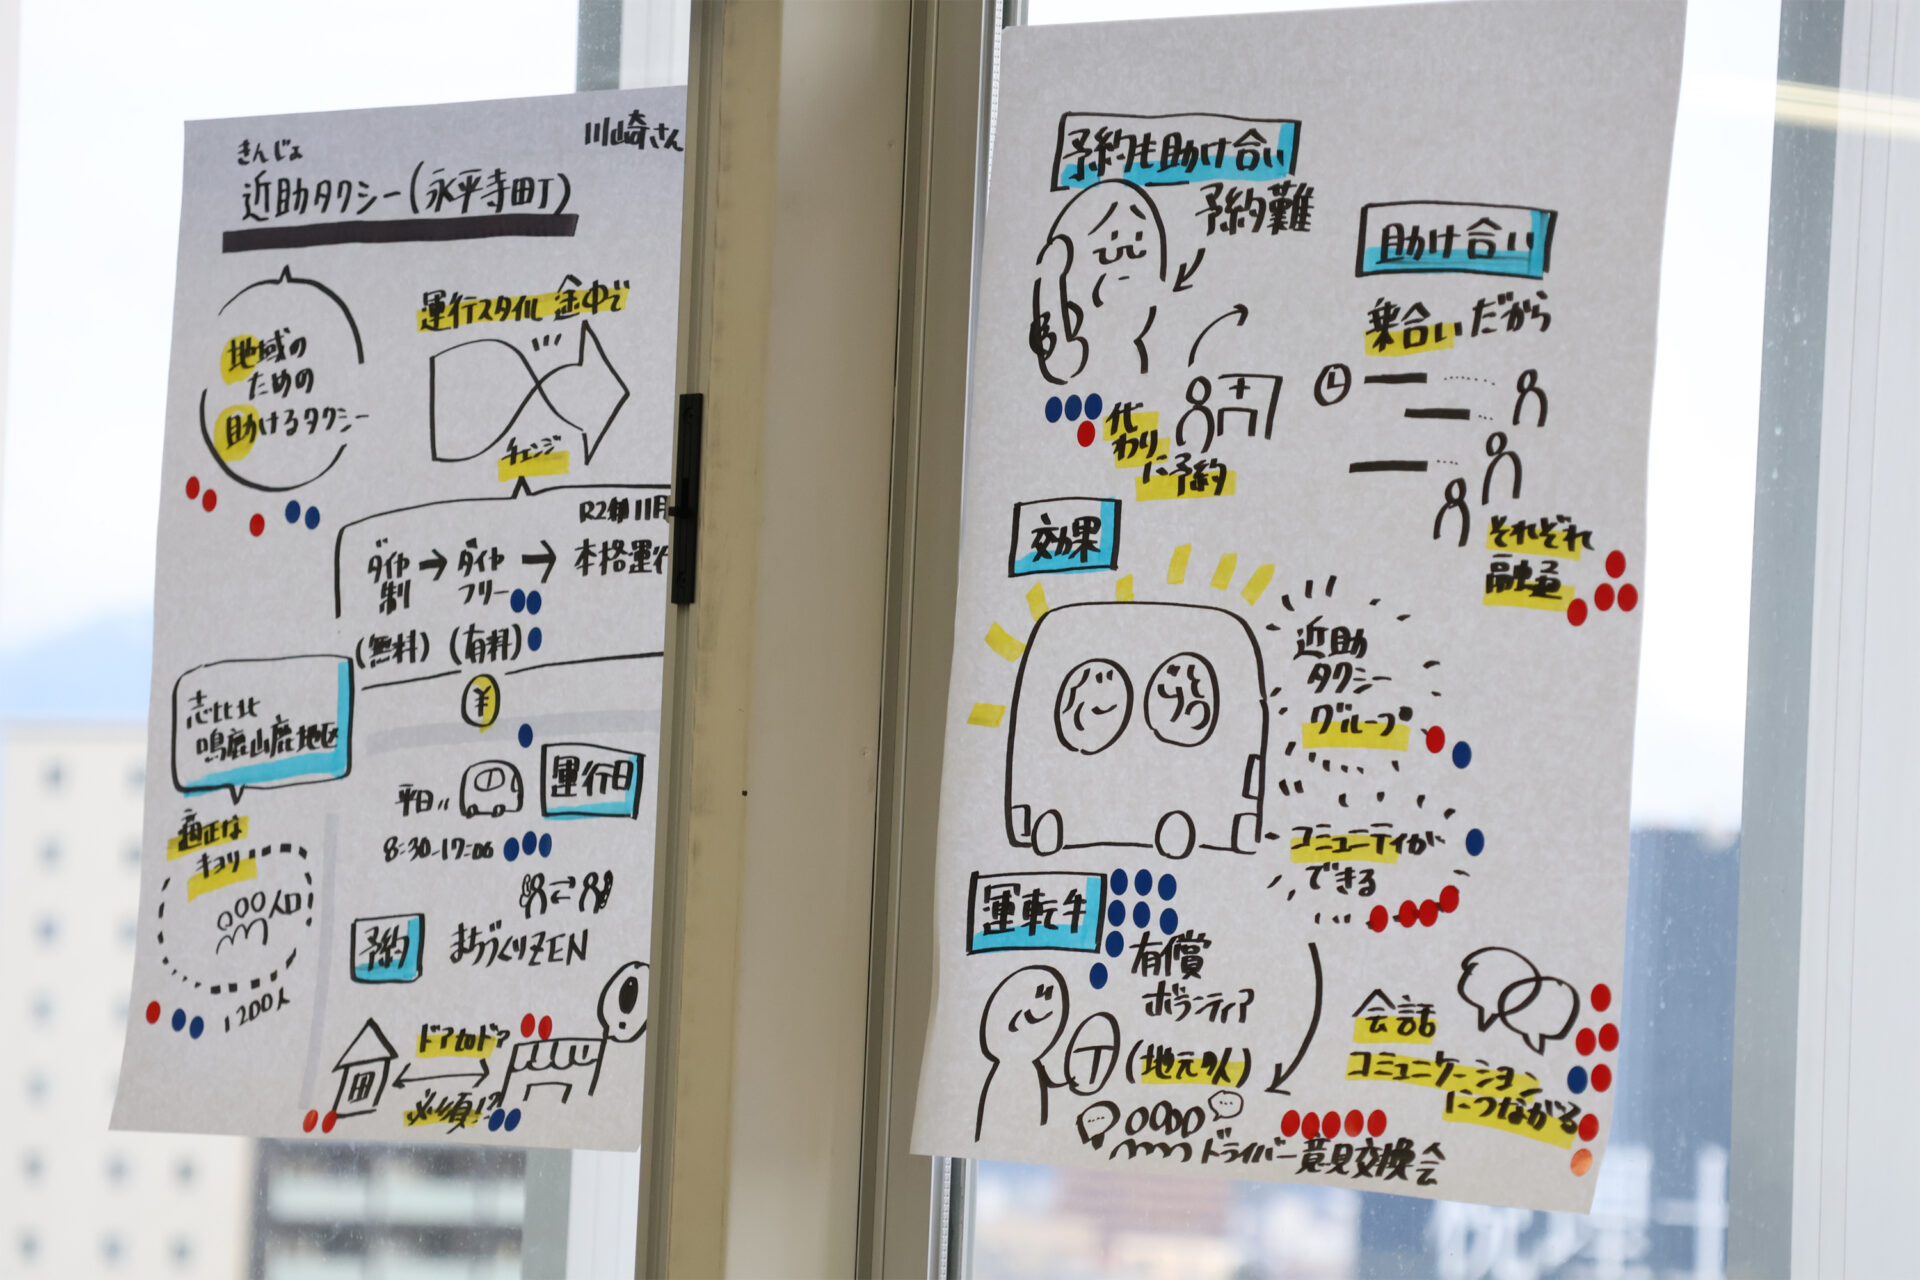 川崎さん
きんじょ
近助タクシー(永平寺町)
地域の
ための
助けるタクシー
運行スタイル 途中で
チェンジ
R2年11月
ダイヤ
制
→
ダイヤ
フリー
→
本格運行
(無料)
(有料)
¥
志比北
鳴鹿山鹿地区
適正な
キョリ
人口
1200人
運行日
平日
8:30-17:00
予約
まちづくりZEN
ドアtoドア
必須!?
予約も助け合い
予約難
代
わり
に予約
助け合い
乗合いだから
それぞれ
融通
効果
近助
タクシー
グループ
コミュニティが
できる
運転手
有償
ボランティア
(地元の人)
会話
コミュニケーション
につながる
ドライバー意見交換会